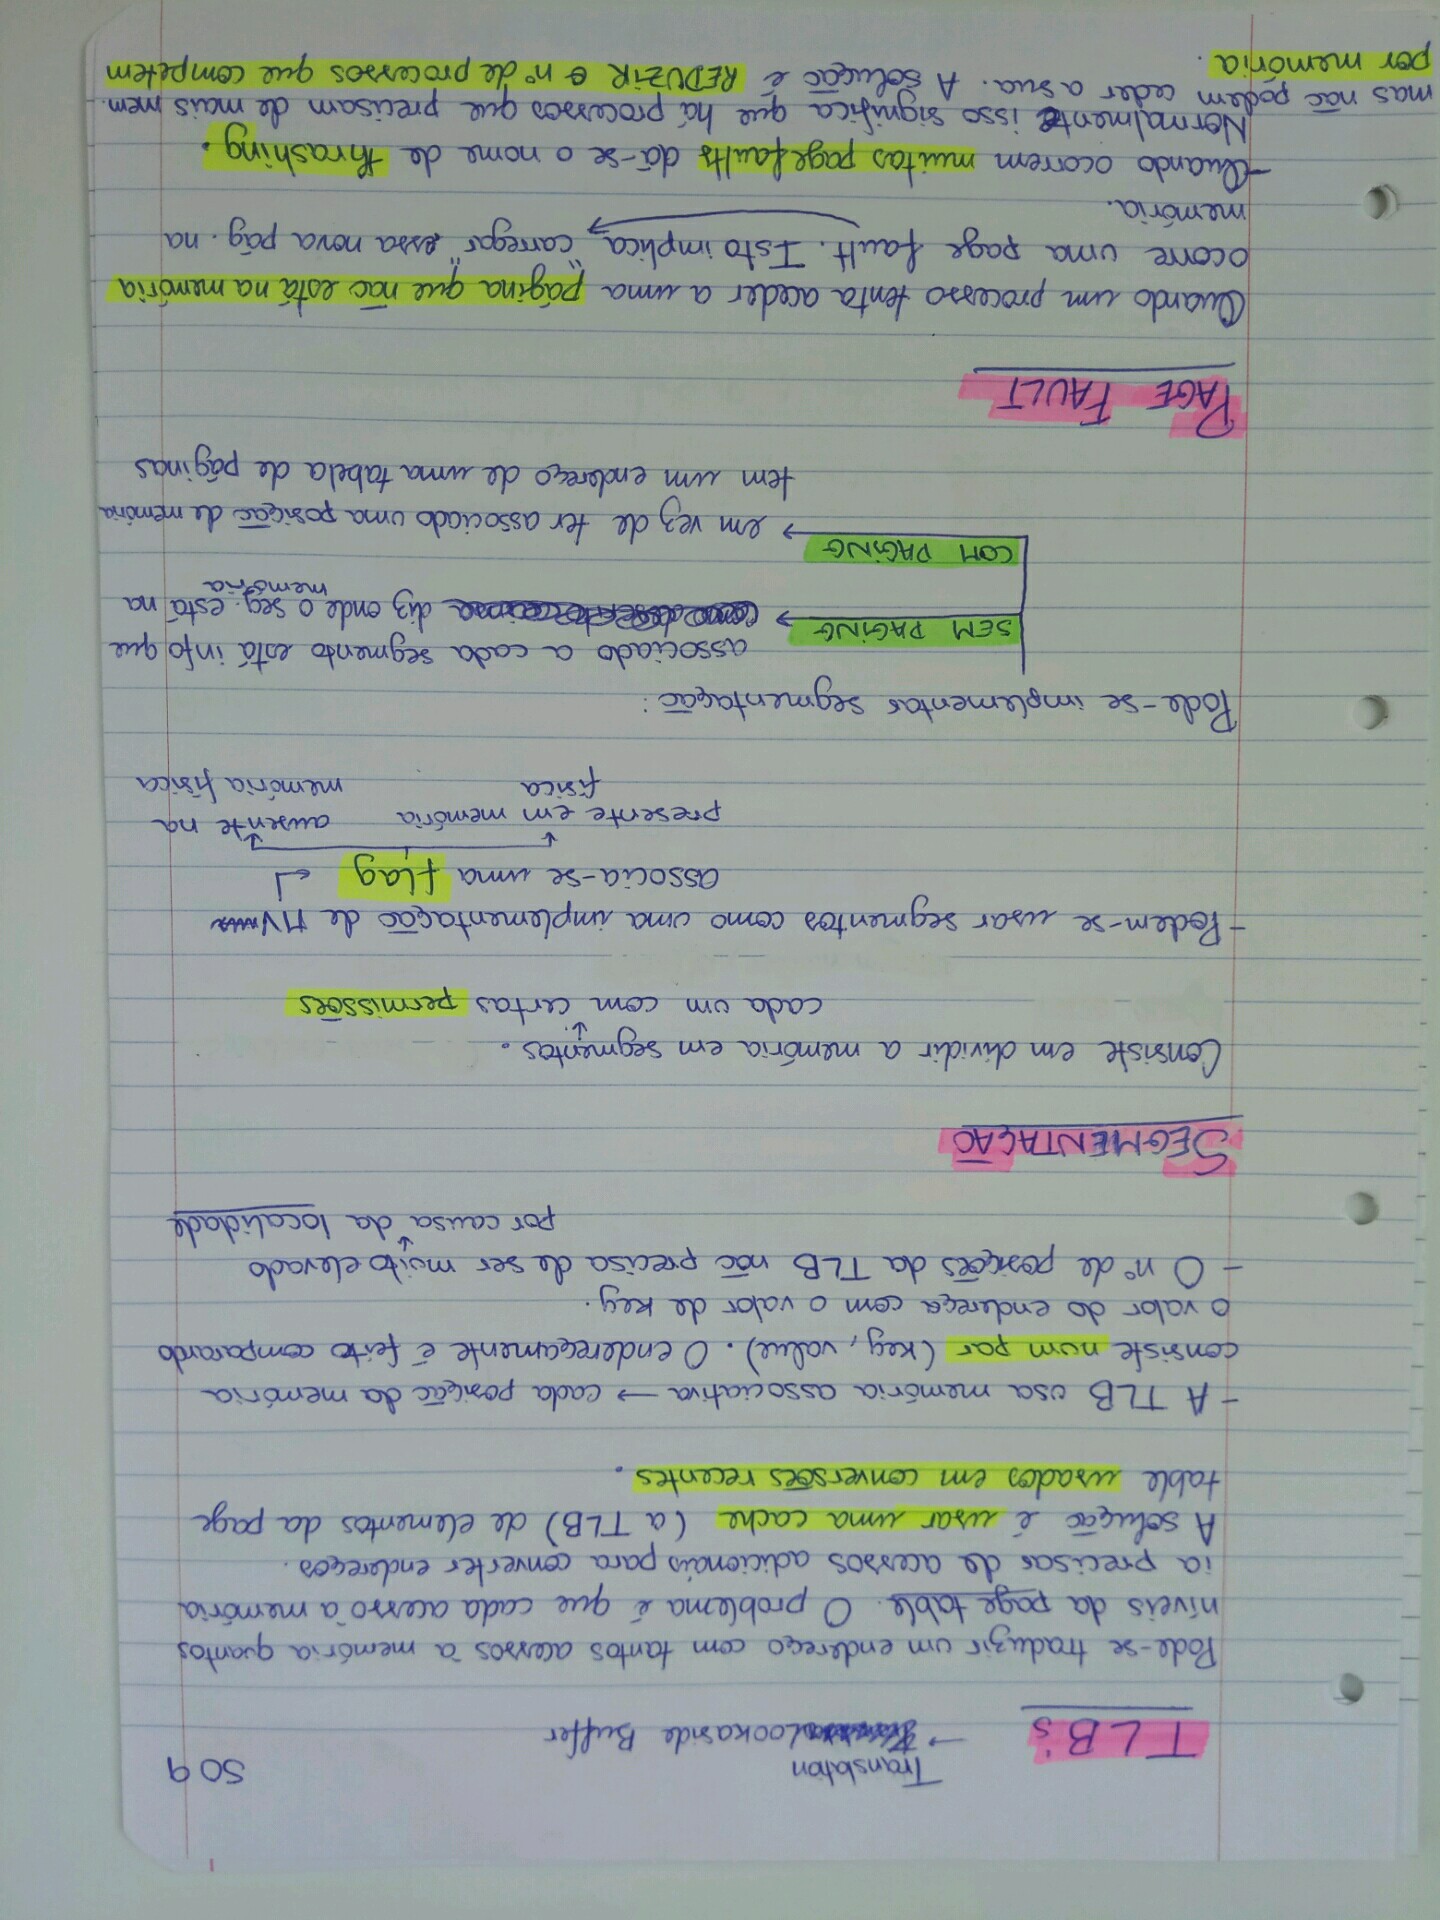 SO 9
TLB's → Translation Lookaside Buffer
Pode-se traduzir um endereço com tantos acessos à memória quantos
níveis da page table. O problema é que cada acesso à memória
ia precisar de acessos adicionais para converter endereços.
A solução é usar uma cache (a TLB) de elementos da page
table usados em conversões recentes.
- A TLB usa memória associativa → cada posição da memória
consiste num par (key, value). O endereçamente é feito comparando
o valor do endereça com o valor de key.
- O nº de posições da TLB não precisa de ser muito elevado
↓
por causa da localidade
SEGMENTAÇÃO
Consiste em dividir a memória em segmentos.
↓
cada um com certas permissões
- Podem-se usar segmentos como uma implementação de MV
associa-se uma flag ↵
presente em memória física
ausente na memória física
Pode-se implementar segmentação:
SEM PAGING → associado a cada segmento está info que
diz onde o seg. está na
memória
COM PAGING
→ em vez de ter associado uma posição de memória
tem um endereço de uma tabela de páginas
PAGE FAULT
Quando um processo tenta aceder a uma página que não está na memória
ocorre uma page fault. Isto implica "carregar" essa nova pág. na
memória.
- Quando ocorrem muitas page faults dá-se o nome de thrashing.
Normalmente isso significa que há processos que precisam de mais mem.
mas não podem ceder a sua. A solução é REDUZIR o nº de processos que competem
por memória.